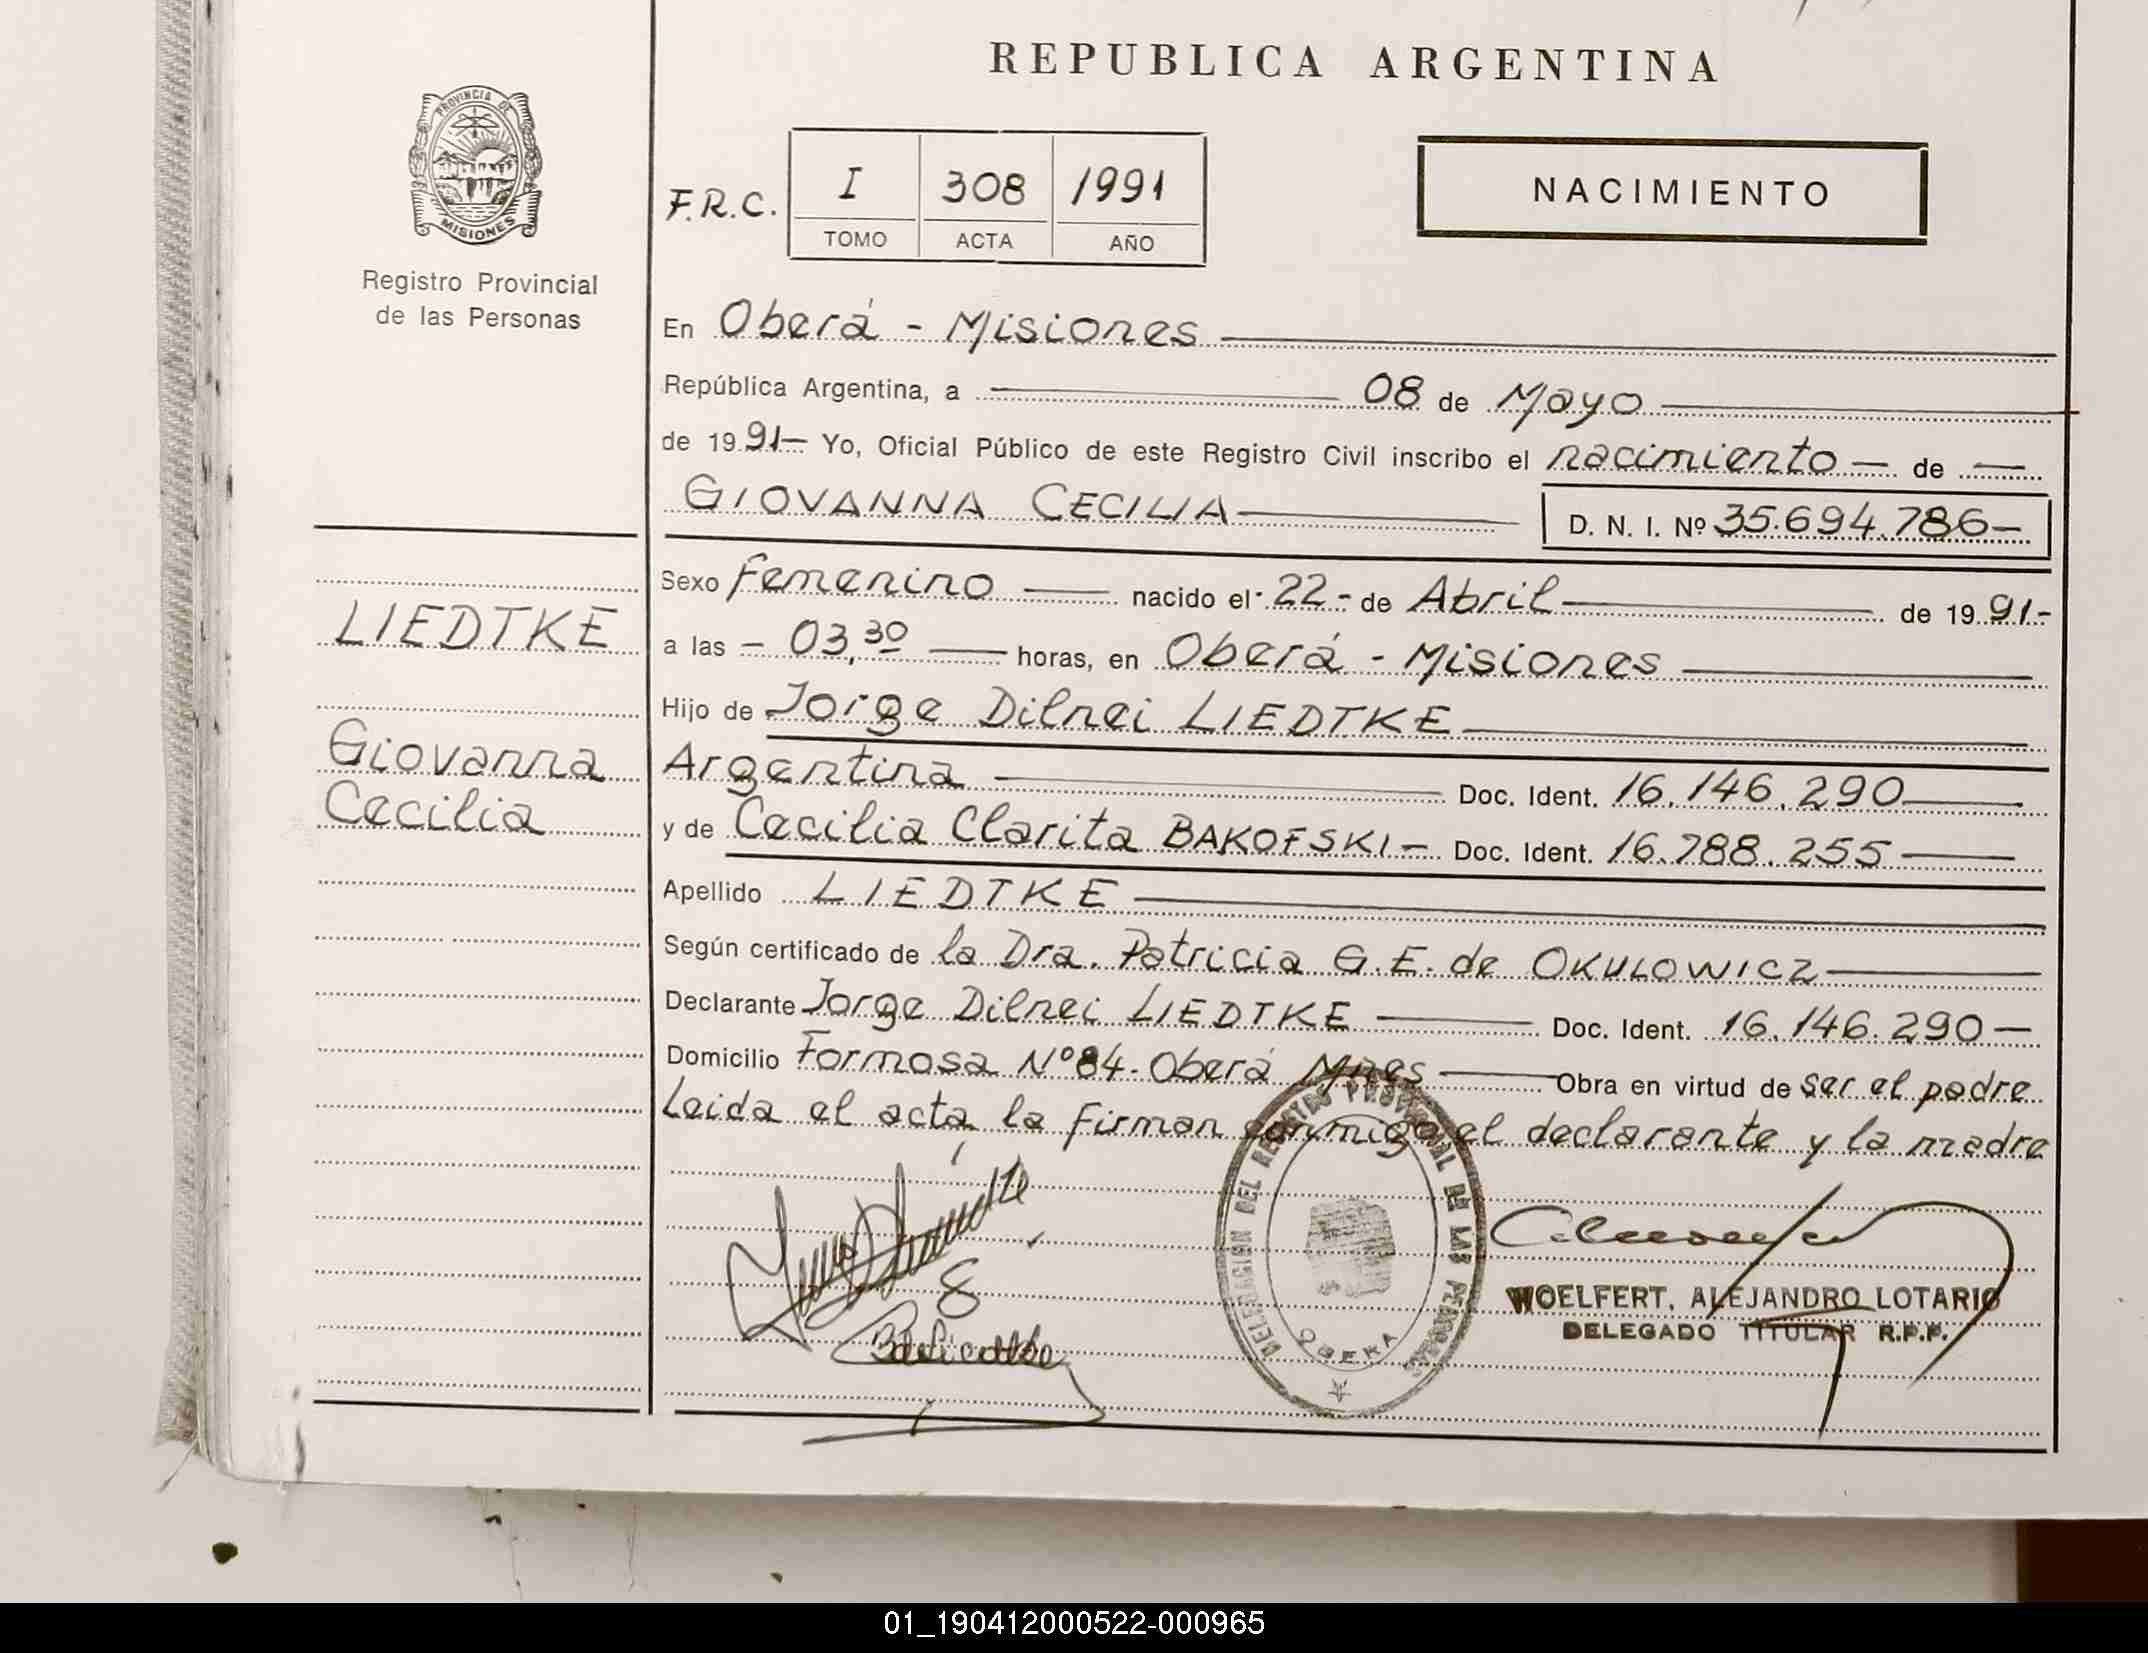 REPUBLICA ARGENTINA
PROVINCIA DE
MISIONES
Registro Provincial
de las Personas
F.R.C. I 308 1991
TOMO ACTA AÑO
NACIMIENTO
En Oberá - Misiones
República Argentina, a 08 de Mayo
de 1991 Yo, Oficial Público de este Registro Civil inscribo el nacimiento de
GIOVANNA CECILIA D. N. I. Nº 35.694.786
LIEDTKE
Giovanna
Cecilia
Sexo Femenino nacido el 22 de Abril de 1991
a las 03,30 horas, en Oberá - Misiones
Hijo de Jorge Dilnei LIEDTKE
Argentina Doc. Ident. 16.146.290
y de Cecilia Clarita BAKOFSKI Doc. Ident. 16.788.255
Apellido LIEDTKE
Según certificado de la Dra. Patricia G.E. de OKULOWICZ
Declarante Jorge Dilnei LIEDTKE Doc. Ident. 16.146.290
Domicilio Formosa Nº 84. Oberá Mnes Obra en virtud de ser el padre
Leida el acta, la firman conmigo el declarante y la madre
DELEGACION DEL REGISTRO PROVINCIAL DE LAS PERSONAS
OBERA
WOELFERT, ALEJANDRO LOTARIO
DELEGADO TITULAR R.P.P.
01_190412000522-000965